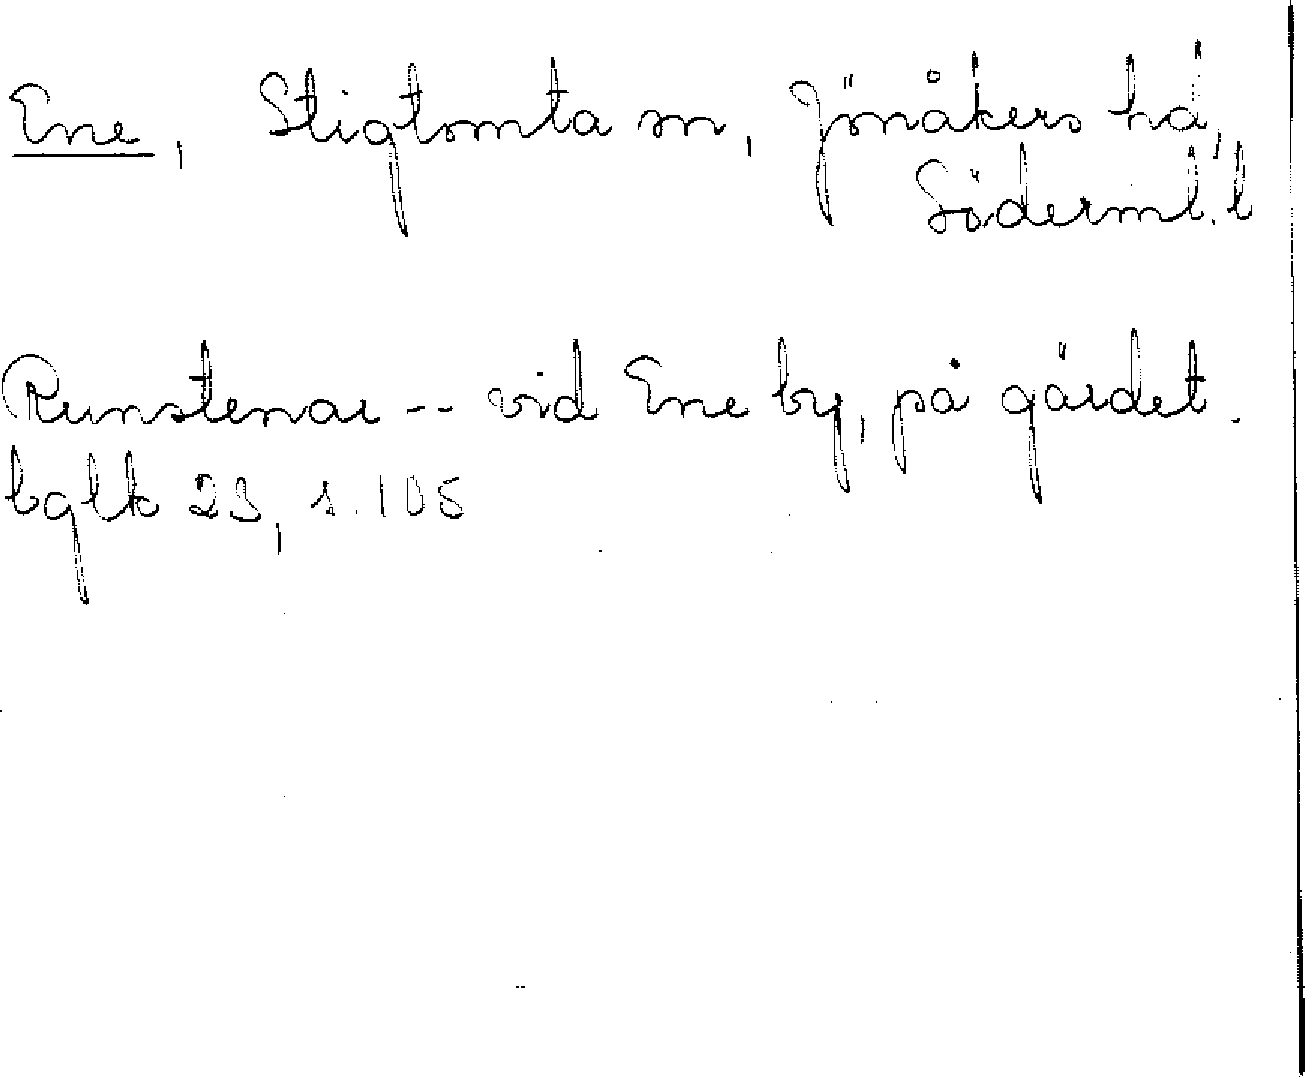 Ene, Stigtomta sn, Jönåkers hd,
Söderml. l
Runstenar -- vid Ene by, på gärdet.
bglk 23, s. 105